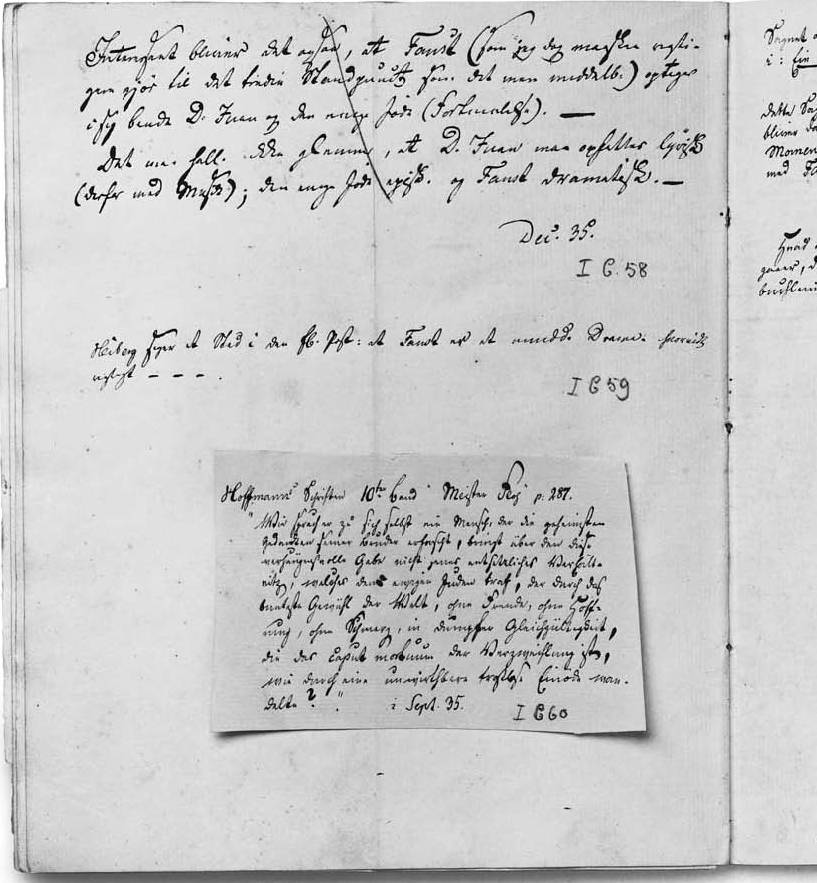 Interessant bliver det ogsaa, at Faust (som jeg dog maaskee rigti-
gere gjør til det tredie Standpunct som det mere middelb:) optager
i sig baade D. Juan og den evige Jøde (Fortvivlelse). —
Det maa hell. ikke glemmes, at D. Juan maa opfattes lyrisk
(derfor med Musik); den evige Jøde episk. og Faust dramatisk. —
Dec. 35.
I C. 58
Heiberg siger et Sted i den fl. Post: at Faust er et Drama: hvorvidt
rigtigt – – – .
I C 59
Hoffmanns Schriften 10te Band Meister Floh p: 287.
"Wie sprach er zu sich selbst ein Mensch, der die geheimsten
Gedanken seiner Brüder erforscht, bringt über den diese
verhängnisvolle Gabe nicht jenes entsetzliche Verhält-
niß, welches den ewigen Juden traf, der durch das
bunteste Gewühl der Welt, ohne Freude, ohne Hoff-
nung, ohne Schmerz, in dumpfer Gleichgültigkeit,
die das caput mortuum der Verzweiflung ist,
wie durch eine unwirthbare trostlose Einöde wan-
delte? "
i Sept. 35.
I C 60
Hvad